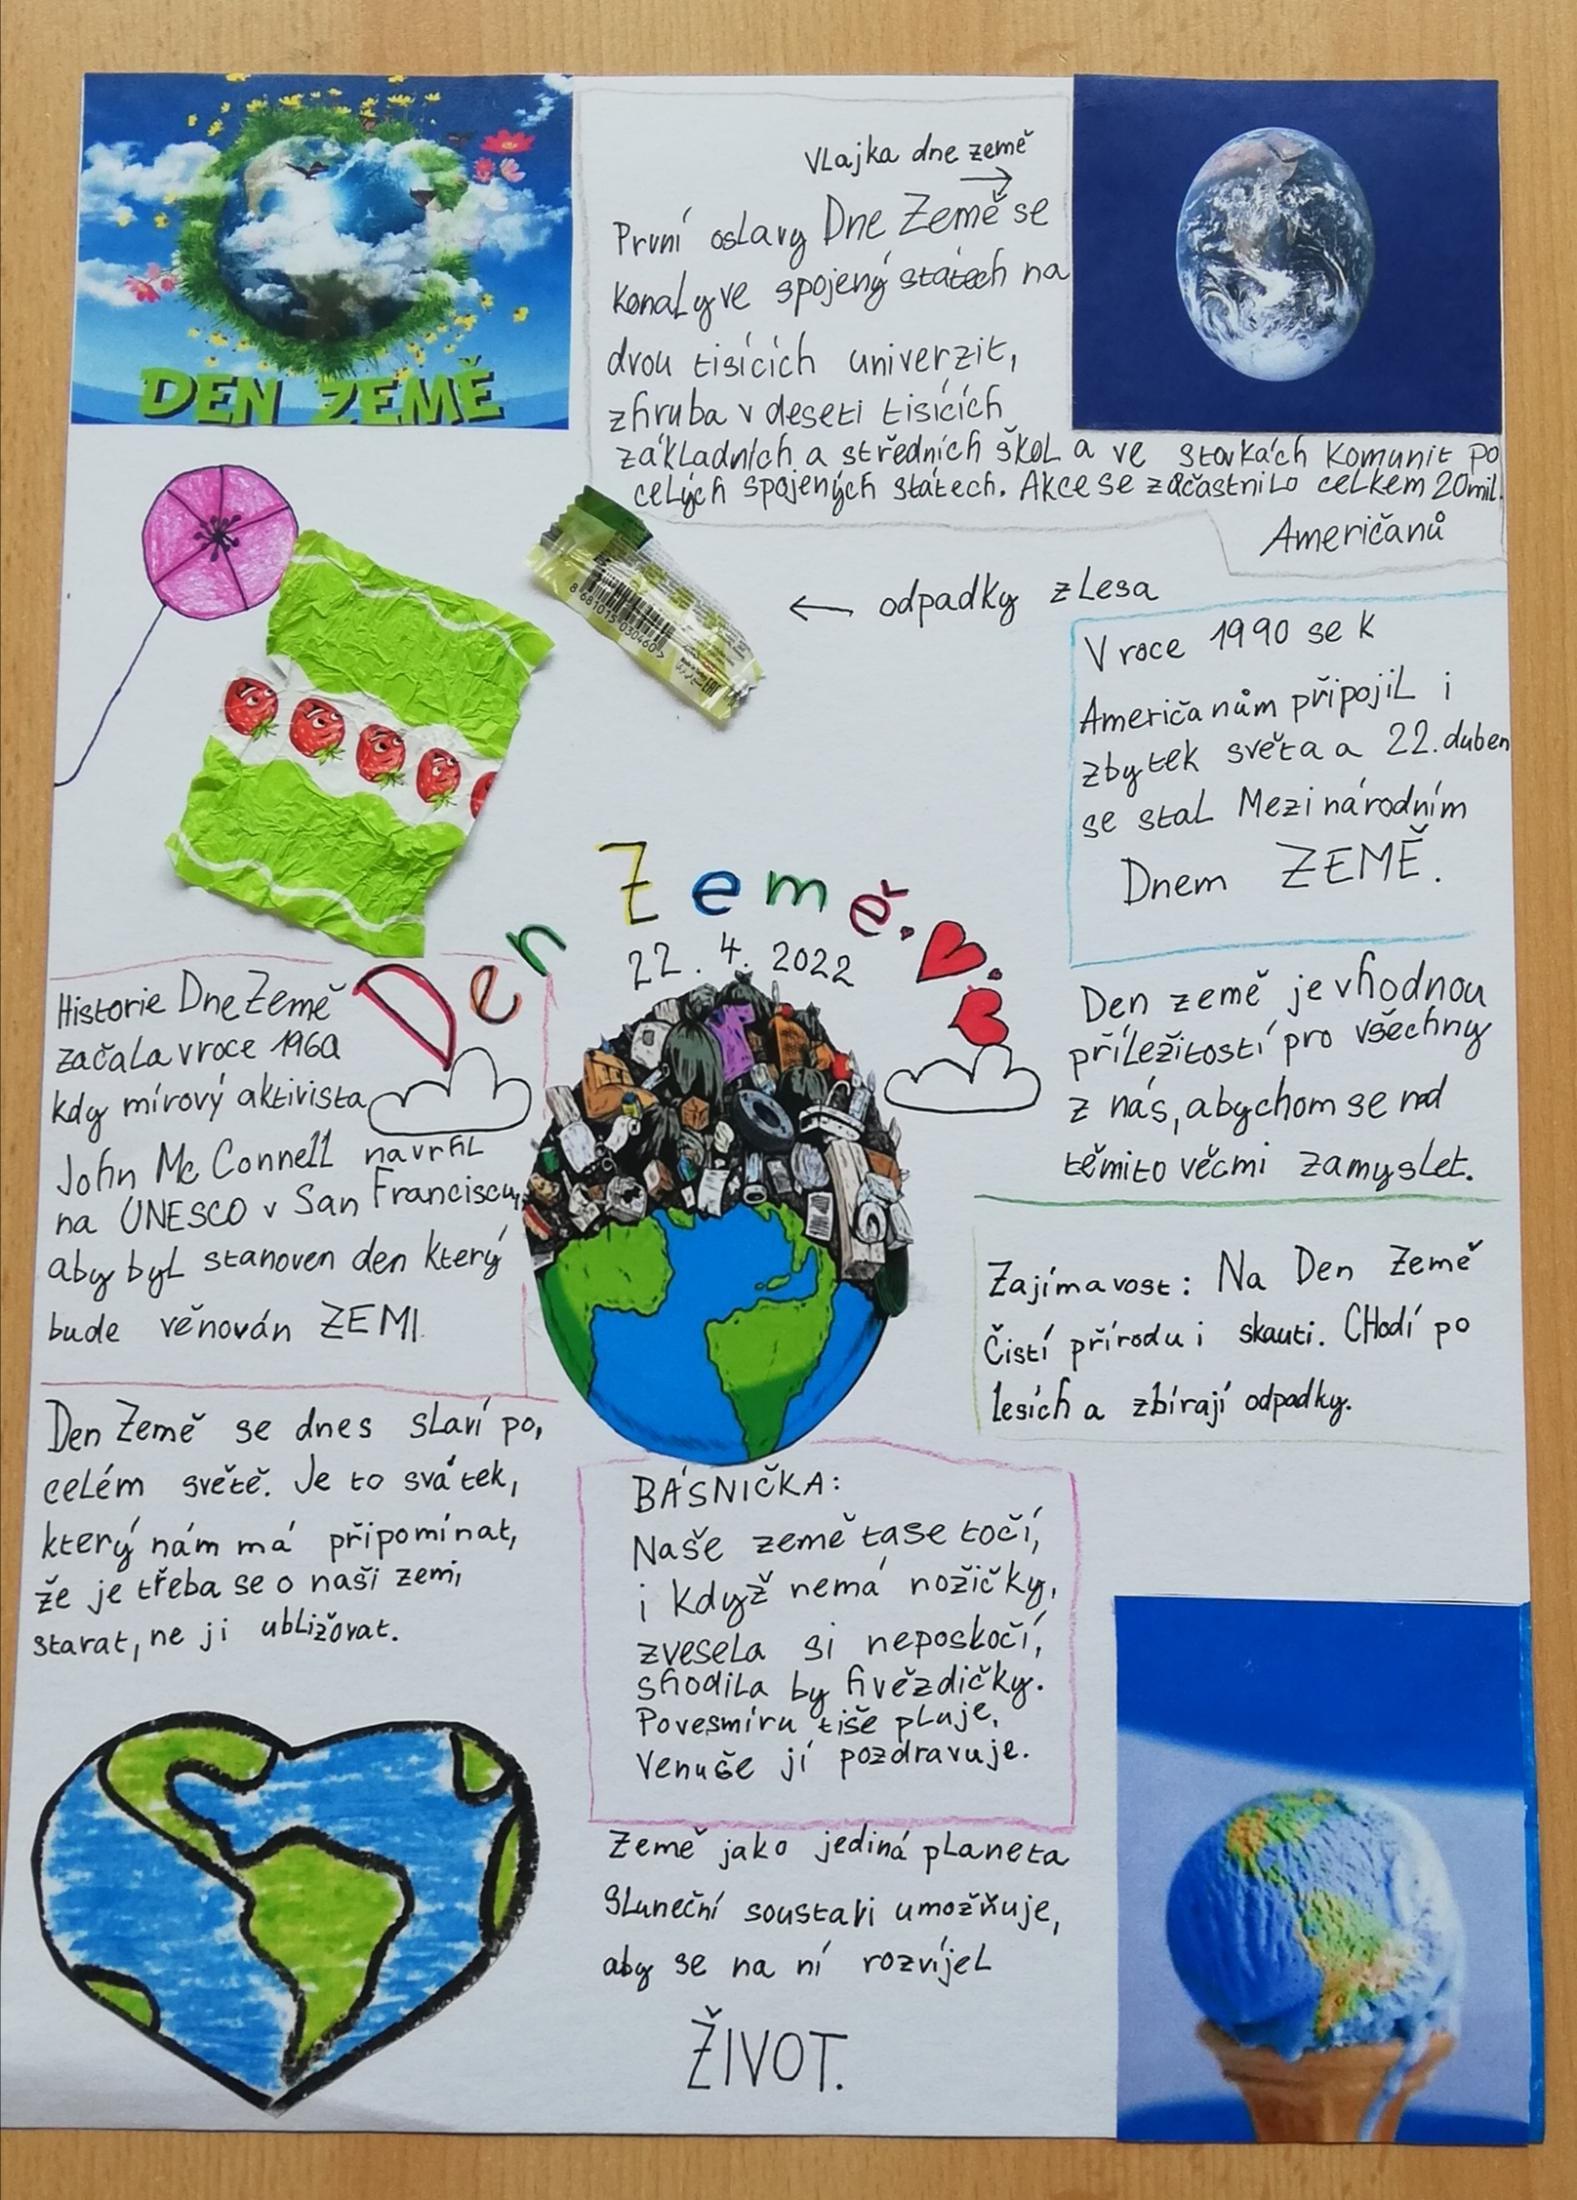 DEN ZEMĚ
Vlajka dne země
První oslavy Dne Země se
konaly ve spojený státech na
dvou tisících univerzit,
zhruba v deseti tisících
základních a středních škol a ve stovkách komunit po
celých spojených státech. Akce se zůčastnilo celkem 20mil.
Američanů
8 681015 030460 >
odpadky z lesa
V roce 1990 se k
Američanům připojil i
zbytek světa a 22. duben
se stal Mezinárodním
Dnem ZEMĚ.
Den Země.
22. 4. 2022
Historie Dne Země
začala v roce 1960
kdy mírový aktivista
John Mc Connell navrhl
na UNESCO v San Franciscu,
aby byl stanoven den který
bude věnován ZEMI.
Den země je vhodnou
příležitostí pro všechny
z nás, abychom se nad
těmito věcmi zamyslet.
Zajímavost: Na Den Země
čistí přírodu i skauti. CHodí po
lesích a zbírají odpadky.
Den Země se dnes slaví po,
celém světě. Je to svátek,
který nám má připomínat,
že je třeba se o naši zemi,
starat, ne ji ubližovat.
BÁSNIČKA:
Naše země ta se točí,
i když nemá nožičky,
zvesela si neposkočí,
shodila by hvězdičky.
Povesmíru tiše pluje,
Venuše jí pozdravuje.
Země jako jediná planeta
Sluneční soustavi umožňuje,
aby se na ní rozvíjel
ŽIVOT.